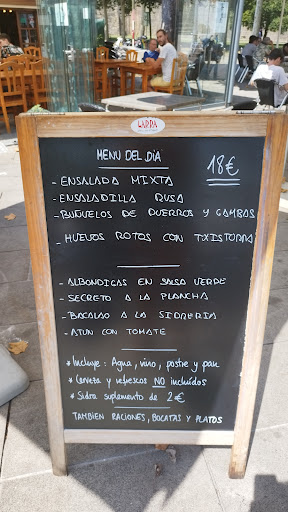 LARPA
MENU DEL DIA
18€
- ENSALADA MIXTA
- ENSALADILLA RUSA
- BUÑUELOS DE PUERROS Y GAMBAS
- HUEVOS ROTOS CON TXISTORRA
- ALBONDIGAS EN SALSA VERDE
- SECRETO A LA PLANCHA
- BACALAO A LA SIDRERIA
- ATUN CON TOMATE
* Incluye: Agua, vino, postre y pan
* Cerveza y refrescos NO incluidos
* Sidra suplemento de 2€
TAMBIEN RACIONES, BOCATAS Y PLATOS